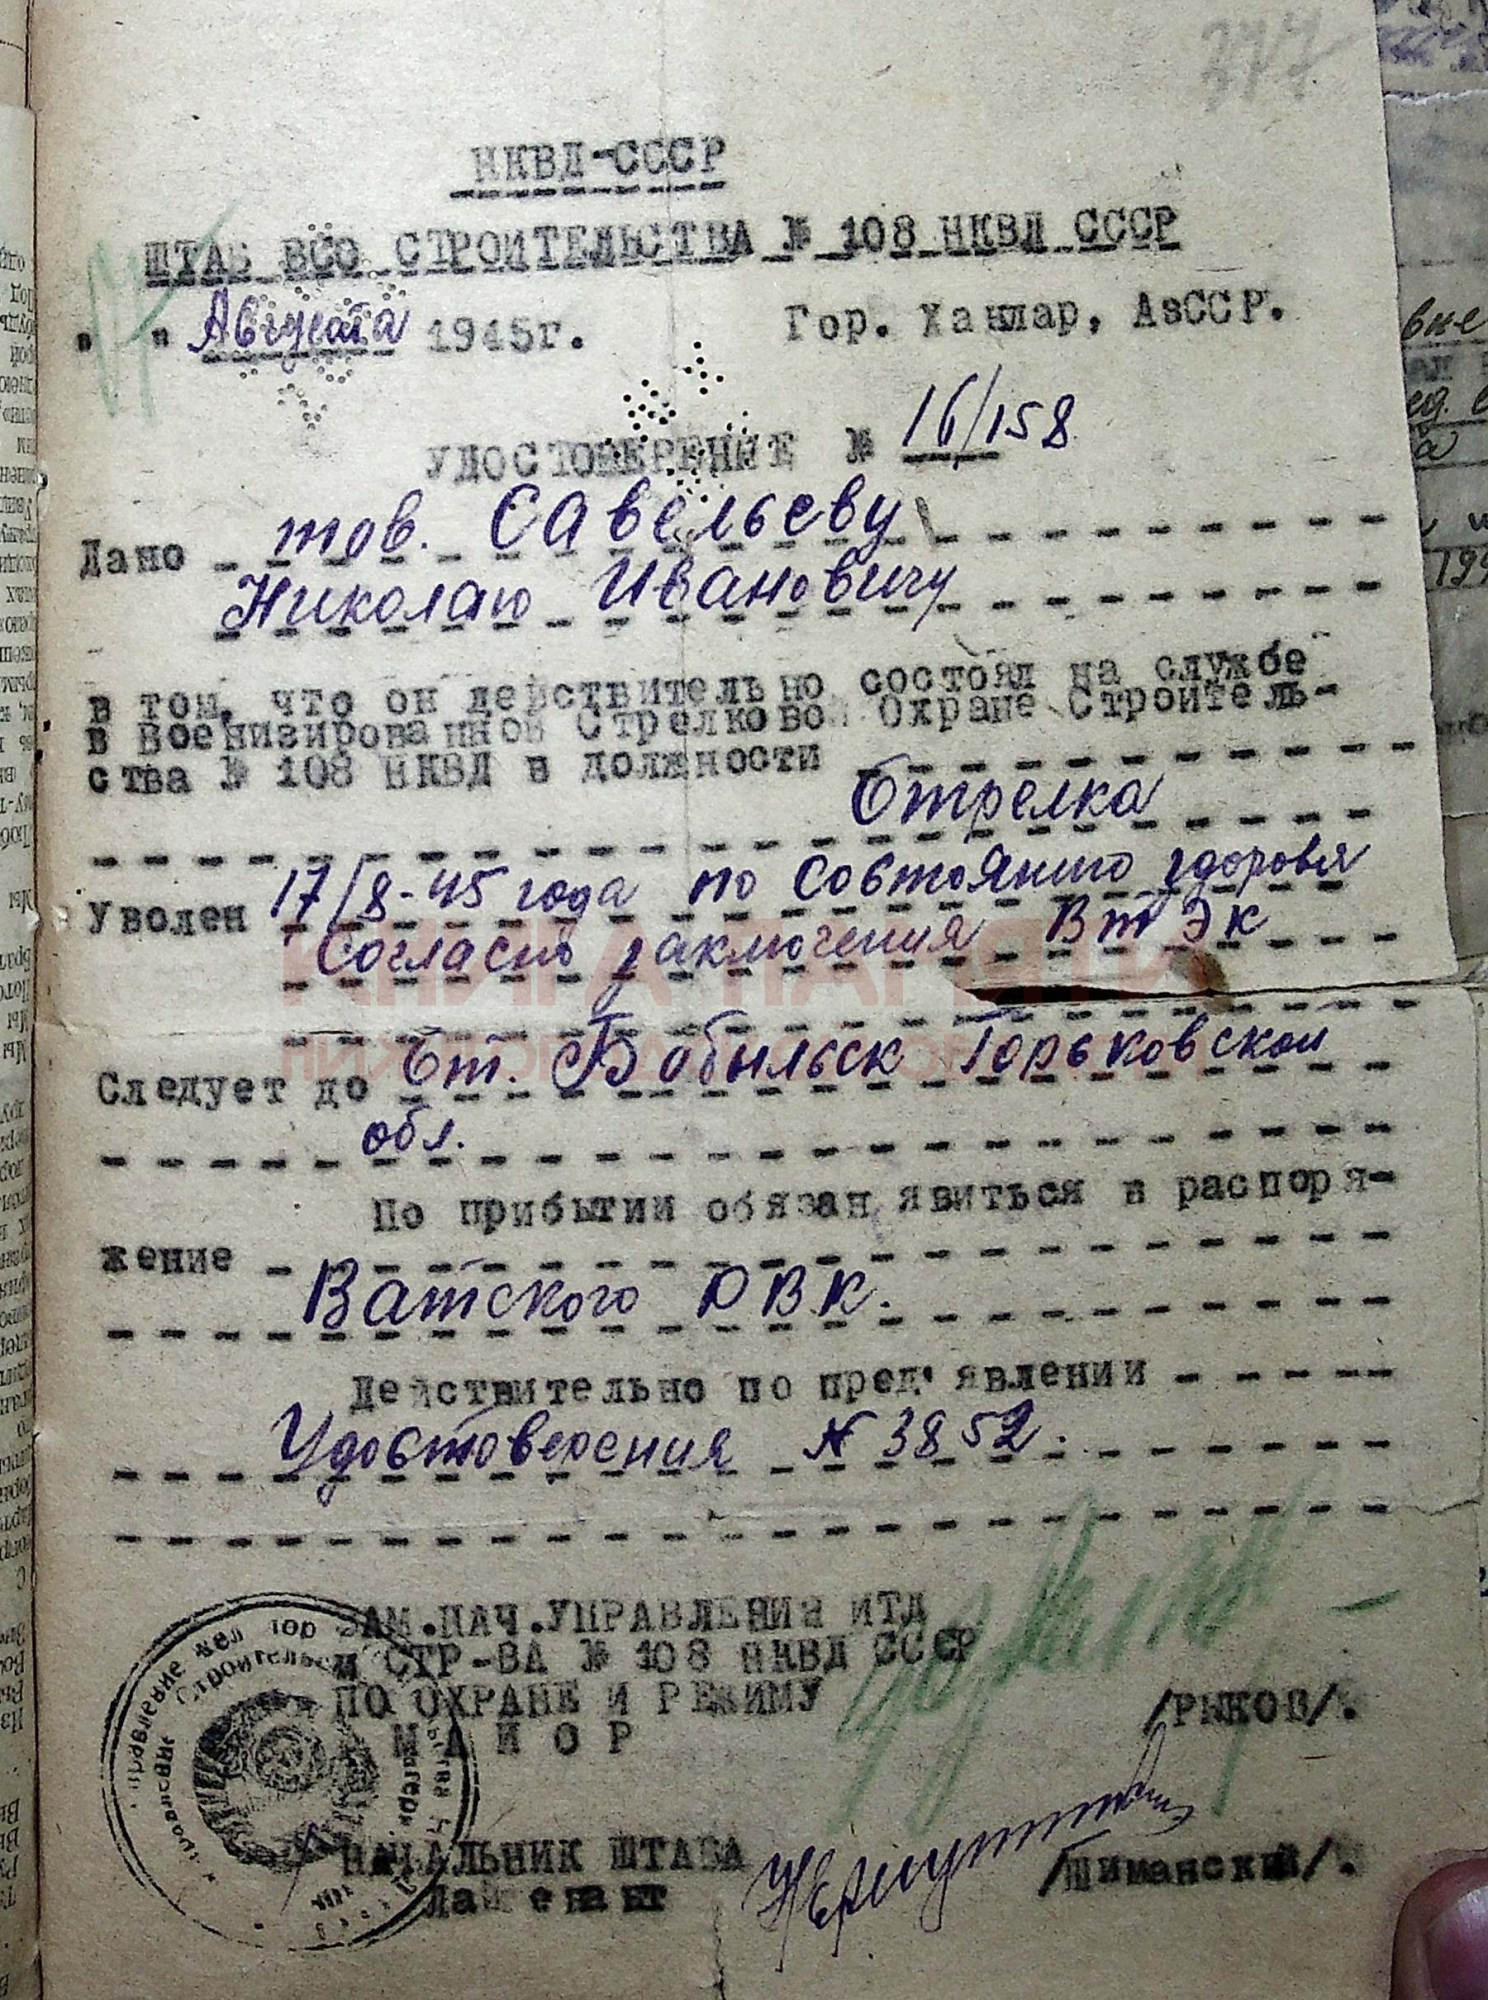 377
НКВД-СССР
ШТАБ ВСО СТРОИТЕЛЬСТВА № 108 НКВД СССР
" " Августа 1945г. Гор. Ханлар, АзССР.
УДОСТОВЕРЕНИЕ № 16/158
Дано тов. Савельеву
Николаю Ивановичу
в том, что он действительно состоял на службе
в Военизированной Стрелковой Охране Строитель-
ства № 108 НКВД в должности
Стрелка
Уволен 17/8-45 года по состоянию здоровья
Согласно заключения ВтЭк
КНИГА ПАМЯТИ
Следует до ст. Бобыльск Горьковской
обл.
По прибытии обязан явиться в распоря-
жение
Ватского РВК.
Действительно по пред'явлении
Удостоверения № 3852.
ЗАМ.НАЧ.УПРАВЛЕНИЯ ИТЛ
И СТР-ВА № 108 НКВД СССР
ПО ОХРАНЕ И РЕЖИМУ
МАЙОР /РЫКОВ/.
НАЧАЛЬНИК ШТАБА
Лейтенант /Шиманский/.